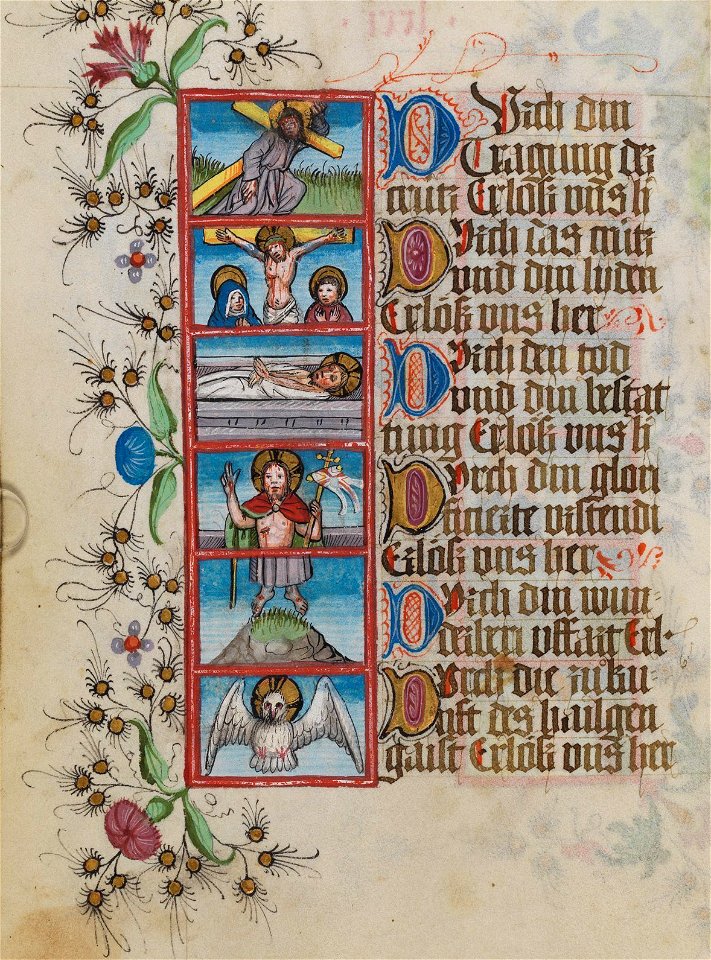 DVrch din
Tragung dez
crutz Erlöß vns h
Durch das crütz
vnd din lyden
Erlöß vns her
Durch den tod
vnd din bestat
tung Erlöß vns h
Durch din glori
vfstendi
Erlöß vns her
Durch din wun-
vffart Erl
Durch die zůku-
nft des hailgen
gaist Erlöß vns her